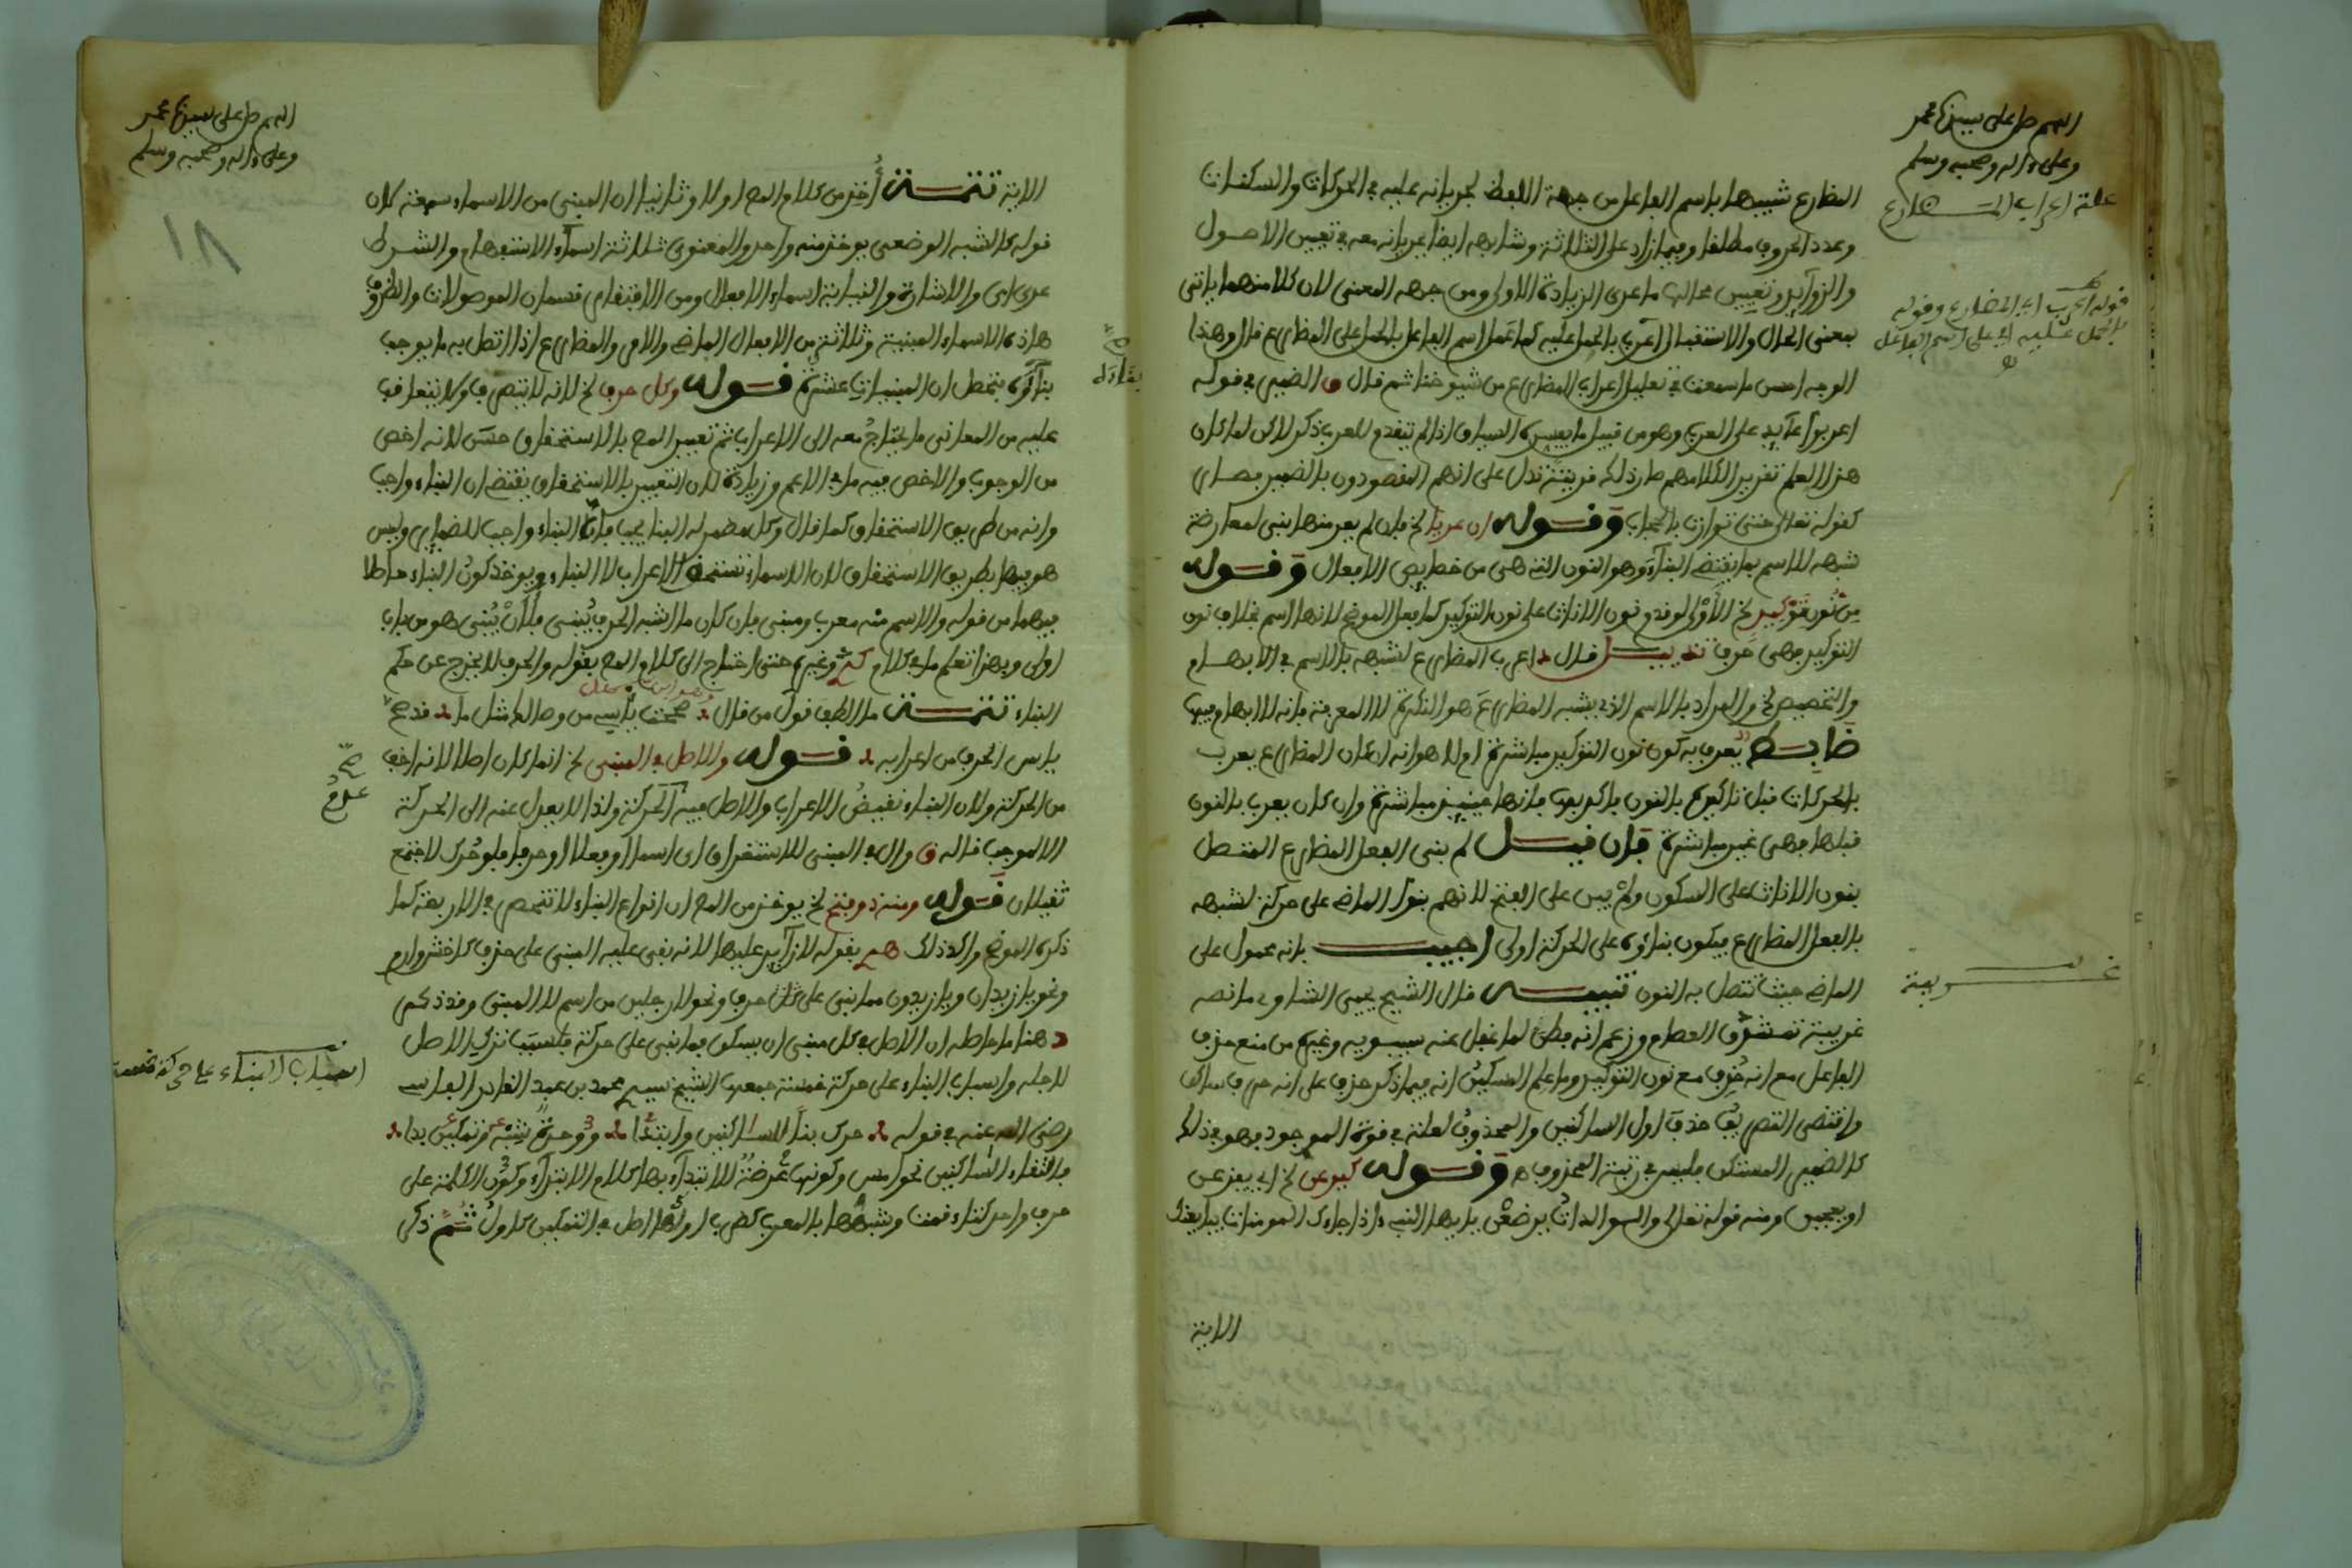 اللهم صل على سيدنا محمد
وعلى ءاله وصحبه وسلم
علة اعراب المضارع
المضارع شبيها باسم الفاعل من جهة اللفظ لجريانه عليه في الحركات والسكنات
وعدد الحروف مطلقا وفيما زاد على الثلاثة وشابهه ايضا لجريانه معه في تعيين الاصول
والزوايد وتعيين محالها ما عدى الزيادة الاولى ومن جهه المعنى لان كلا منهما ياتي
قوله اعرب اي المضارع وقوله
بالحمل عليه اي على اسم الفاعل
بمعنى الحال والاستقبال اعرب بالحمل عليه كما عمل اسم الفاعل بالحمل على المضارع قال وهذا
الوجه احسن ما سمعت في تعليل اعراب المضارع من شيوخنا ثم قال والضمير في قوله
اعربوا عايد على العرب وهو من قبيل ما يفسره السياق اذ لم يتقدم للعرب ذكر لاكن لما كان
هذا العلم تقريرا لكلامهم صار ذلك قرينة تدل على انهم المقصودون بالضمير فصار
كقوله تعالى حتى توارت بالحجاب وقوله ان عريا لخ فان لم يعر منها بني لمعارضة
شبهه للاسم بما يقتضي البناء وهو النون التي هي من خصايص الافعال وقوله
من نون توكيد لخ الاولى لو قدم نون الاناث على نون التوكيد كما فعل الموضح لانها اسم بخلاف نون
التوكيد فهي حرف تدريب قال اعرب المضارع لشبهه بالاسم في الابهام
والتخصيص لخ والمراد بالاسم الذي يشبه المضارع هو النكرة لا المعرفة فانه لا ابهام فيها
ضابط يعرف به كون نون التوكيد مباشرة او لا هو انه ان كان المضارع يعرب
بالحركات قبل تاكيده بالنون فاكد بها فانها حينئذ مباشرة وان كان يعرب بالنون
قبلها فهي غير مباشرة فان قيل لم بني الفعل المضارع المتصل
بنون الاناث على السكون ولم يبن على الفتح لانهم بنوا الماضي على حركة لشبهه
بالفعل المضارع فيكون بناؤه على الحركة اولى اجيب بانه محمول على
الماضي حيث تتصل به النون تنبيه قال الشيخ يحيى الشاوي ما نصه
غريبة
غريبة تمشدق العصام وزعم انه فطن لما غفل عنه سيبويه وغيره من منع حذف
الفاعل مع انه حذف مع نون التوكيد وما علم المسكين انه فيما ذكر حذف على انه حرف ساكن
واقتضى التصريف حذف اول الساكنين والمحذوف لعلة في قوة الموجود فهو في ذلك
كالضمير المستكن فليس في رتبة المحذوف وقوله كيرعن لخ اي يفزعن
او يعجبن ومنه قوله تعالى والوالدات يرضعن يا ايها النبي اذا جاءك المومنات يبايعنك
الاية
اللهم صل على سيدنا محمد
وعلى ءاله وصحبه وسلم
١٨
الاية تتمة أخذ من كلام المص اولا وثانيا ان المبني من الاسماء سبعة لان
قوله كالشبه الوضعي يوخذ منه واحد والمعنوي ثلاثة اسماء الاستفهام والشرط
عدى اي والاشارة والنيابة اسماء الافعال ومن الافتقار قسمان الموصولات والظروف
هذه الاسماء المبنية وثلاثة من الافعال الماضي والامر والمضارع اذا اتصل به ما يوجب
بناءه فتحصل ان المبنيات عشرة قوله وكل حرف لخ لانه لا يتصرف ولا يتعاقب
عليه من المعاني ما يحتاج معه الى الاعراب ثم تعبير المص بالاستحقاق حسن لانه اخص
من الوجوب والاخص فيه ما في الاعم وزيادة لان التعبير بالاستحقاق يقتضي ان البناء واجب
وانه من طريق الاستحقاق كما قال وكل مضمر له البنا يجب فان البناء واجب للضماير وليس
هو فيها بطريق الاستحقاق لان الاسماء تستحق الاعراب لا البناء ويوخذ كون البناء حاصلا
فيهما من قوله والاسم منه معرب ومبني فان كان ما اشبه الحرف يبنى فلأن يبنى هو من باب
اولى وبهذا تعلم ما في كلام كثير وغيره حتى احتاج الى كلام المص بقوله والحرف لا يخرج عن حكم
البناء تتمة ما الطف قول من قال صححت ياسي من وصالك مثل ما قد صح
ياس الحرف من اعرابه قوله والاصل في المبني لخ انما كان اصلا لانه اخف
صح
من الحركة ولان البناء نقيض الاعراب والاصل فيه الحركة ولذا لا يعدل عنه الى الحركة
الا لموجب قاله ق وال في المبني للاستغراق اي اسما او فعلا او حرفا فلو حرك لاجتمع
ثقيلان قوله ومنه ذو فتح لخ يوخذ من المص ان انواع البناء لا تنحصر في الاربعة كما
ذكره الموضح واكد ذلك بقوله لا زايد عليها لانه بقي عليه المبني على حذف كاخش وارم
ونحو يا زيدان ويا زيدون مما بني على حرف ونحو لا رجلين من اسم لا المبني وقد ذكر
هنا ما حاصله ان الاصل في كل مبني ان يسكن فما بني على حركة فلسبب ترك الاصل
اسباب البناء على حركة خمسة
لاجله واسباب البناء على حركة خمسة جمعها الشيخ سيدي محمد بن عبد القادر الفاسي
رضي الله عنه في قوله حرك بنا للساكنين وابتدا ووحدة شبه وتمكين بدا
فالتقاء الساكنين نحو امس وكونها عرضة للابتداء بها كلام الابتداء وكون الكلمة على
حرف واحد كتاء قمت وشبهها بالمعرب كضرب اولها اصل في التمكين كاول ثم ذكر